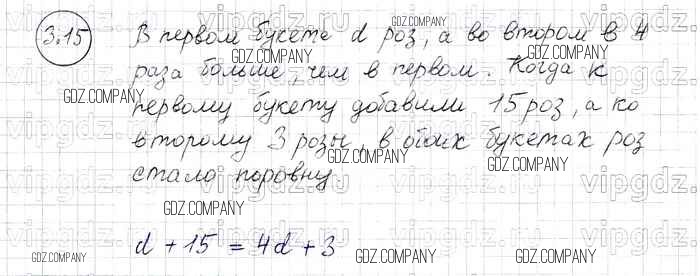 3.15 В первом букете d роз, а во втором в 4
раза больше, чем в первом. Когда к
первому букету добавили 15 роз, а ко
второму 3 розы, в обоих букетах роз
стало поровну.
d + 15 = 4d + 3
GDZ.COMPANY
GDZ.COMPANY
GDZ.COMPANY
GDZ.COMPANY
GDZ.COMPANY
GDZ.COMPANY
GDZ.COMPANY
GDZ.COMPANY
GDZ.COMPANY
GDZ.COMPANY
GDZ.COMPANY
vipgdz.ru
vipgdz.ru
vipgdz.ru
vipgdz.ru